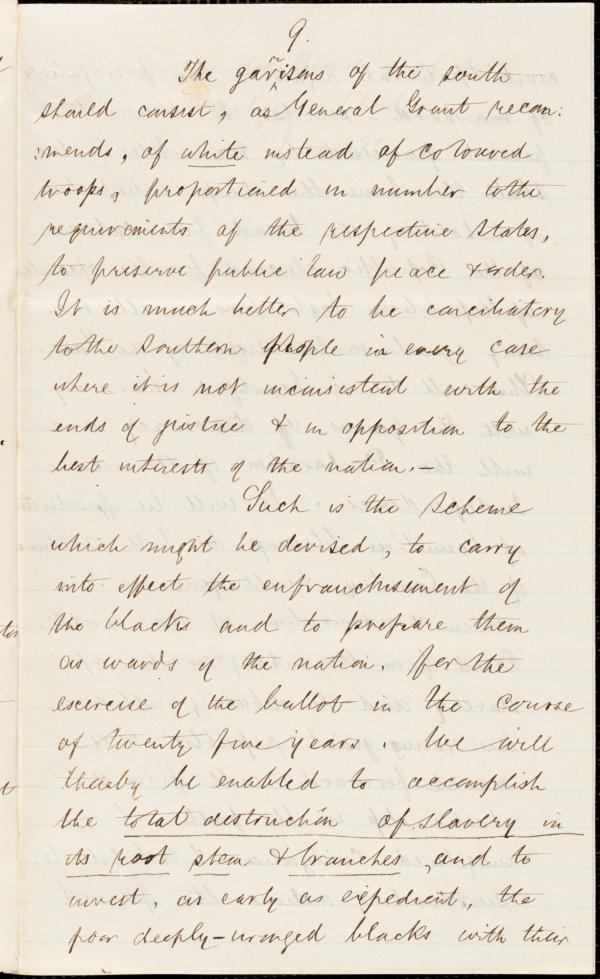 9.
The garisons of the south
should consist, as General Grant recom:
:mends, of white instead of coloured
troops, proportioned in number to the
requirements of the respective States,
to preserve public law peace & order.
It is much better to be conciliatory
to the Southern people in every case
where it is not inconsistent with the
ends of justice & in opposition to the
best interests of the nation.—
Such is the scheme
which might be devised, to carry
into effect the enfranchisement of
the blacks and to prepare them
as wards of the nation, for the
excercise of the ballot in the course
of twenty five years. We will
thereby be enabled to accomplish
the total destruction of slavery in
its root stem & branches, and to
invest, as early as expedient, the
poor deeply-wronged blacks with their